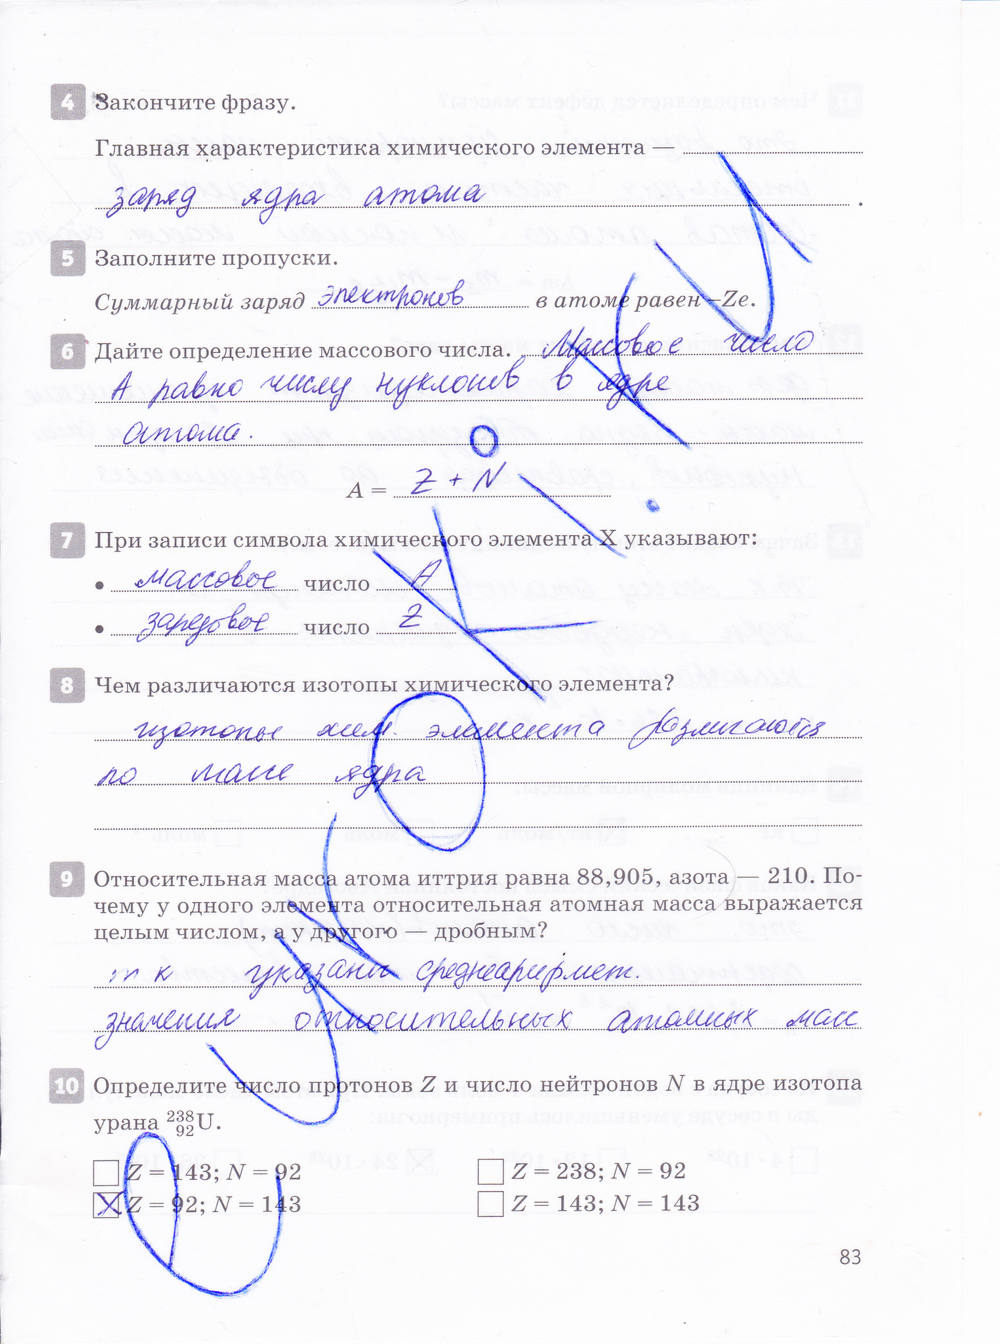 4 Закончите фразу.
Главная характеристика химического элемента —
заряд ядра атома .
5 Заполните пропуски.
Суммарный заряд электронов в атоме равен –Ze.
6 Дайте определение массового числа. Массовое число
А равно числу нуклонов в ядре
атома.
A = Z + N
7 При записи символа химического элемента X указывают:
• массовое число A
• зарядовое число Z
8 Чем различаются изотопы химического элемента?
изотопы хим. элемента различаются
по массе ядра
9 Относительная масса атома иттрия равна 88,905, азота — 210. По-
чему у одного элемента относительная атомная масса выражается
целым числом, а у другого — дробным?
т к указаны среднеарифмет.
значения относительных атомных масс
10 Определите число протонов Z и число нейтронов N в ядре изотопа
урана ²³⁸₉₂U.
Z = 143; N = 92
Z = 238; N = 92
Z = 92; N = 143
Z = 143; N = 143
83